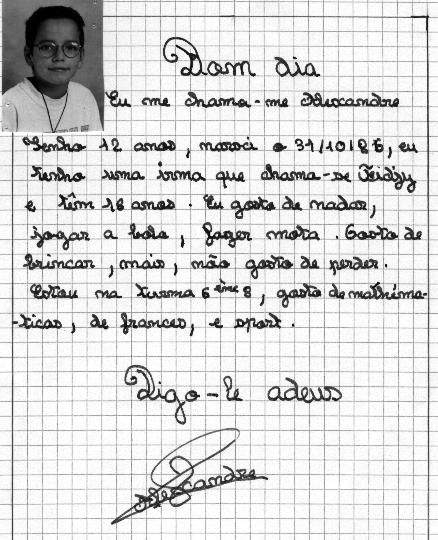 Bom dia
Eu me chama-me Alexcandre
Tenho 12 anos, naroci o 31/10/86, eu
tenho uma irma que chama-se
e têm 16 anos. Eu gosto de nadar,
jogar a bola, fazer mota. Gosto de
brincar, mais, não gosto de perder.
Estou na turma 6 ème 8, gosto de mathéma-
-ticas, de frances, e sport.
Digo-le adeus
Alexcandre